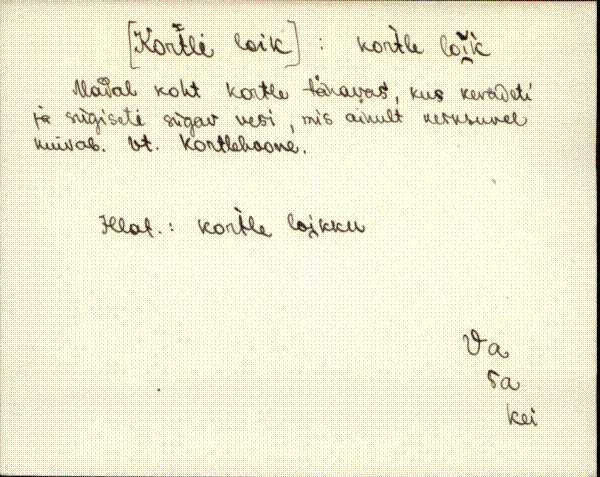 [Kortli loik] : kor̀tle loi̭k̀
Madal koht kortle tänavas, kus kevadeti
ja sügiseti sügav vesi, mis ainult kesksuvel
kuivab. Vt. Kortlehoone.
Illat.: kor̀tle loi̭kku
Va
sa
kei